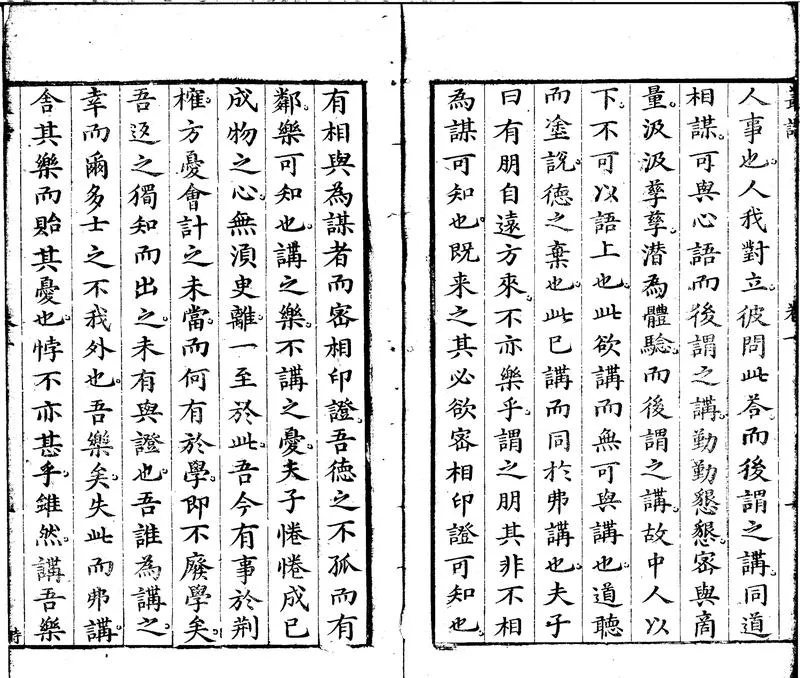 人事也。人我對立。彼問此荅而後謂之講。同道
相謀。可與心語而後謂之講。勤勤懇懇。密與商
量。汲汲孳孳。潛為體驗。而後謂之講。故中人以
下。不可以語上也。此欲講而無可與講也。道聽
而塗說。德之棄也。此已講而同於弗講也。夫子
曰有朋自遠方來。不亦樂乎。謂之朋其非不相
為謀可知也。既来之其必欲密相印證可知也。
有相與為謀者而密相印證。吾德之不孤而有
鄰樂可知也。講之樂不講之憂。夫子惓惓成己
成物之心。無須臾離一至於此。吾今有事於荆
榷。方憂會計之未當而何有於學。即不廢學矣。
吾返之獨知而出之。未有與證也。吾誰為講之。
幸而爾多士之不我外也。吾樂矣。失此而弗講。
舎其樂而貽其憂也。悖不亦甚乎。雖然。講吾樂